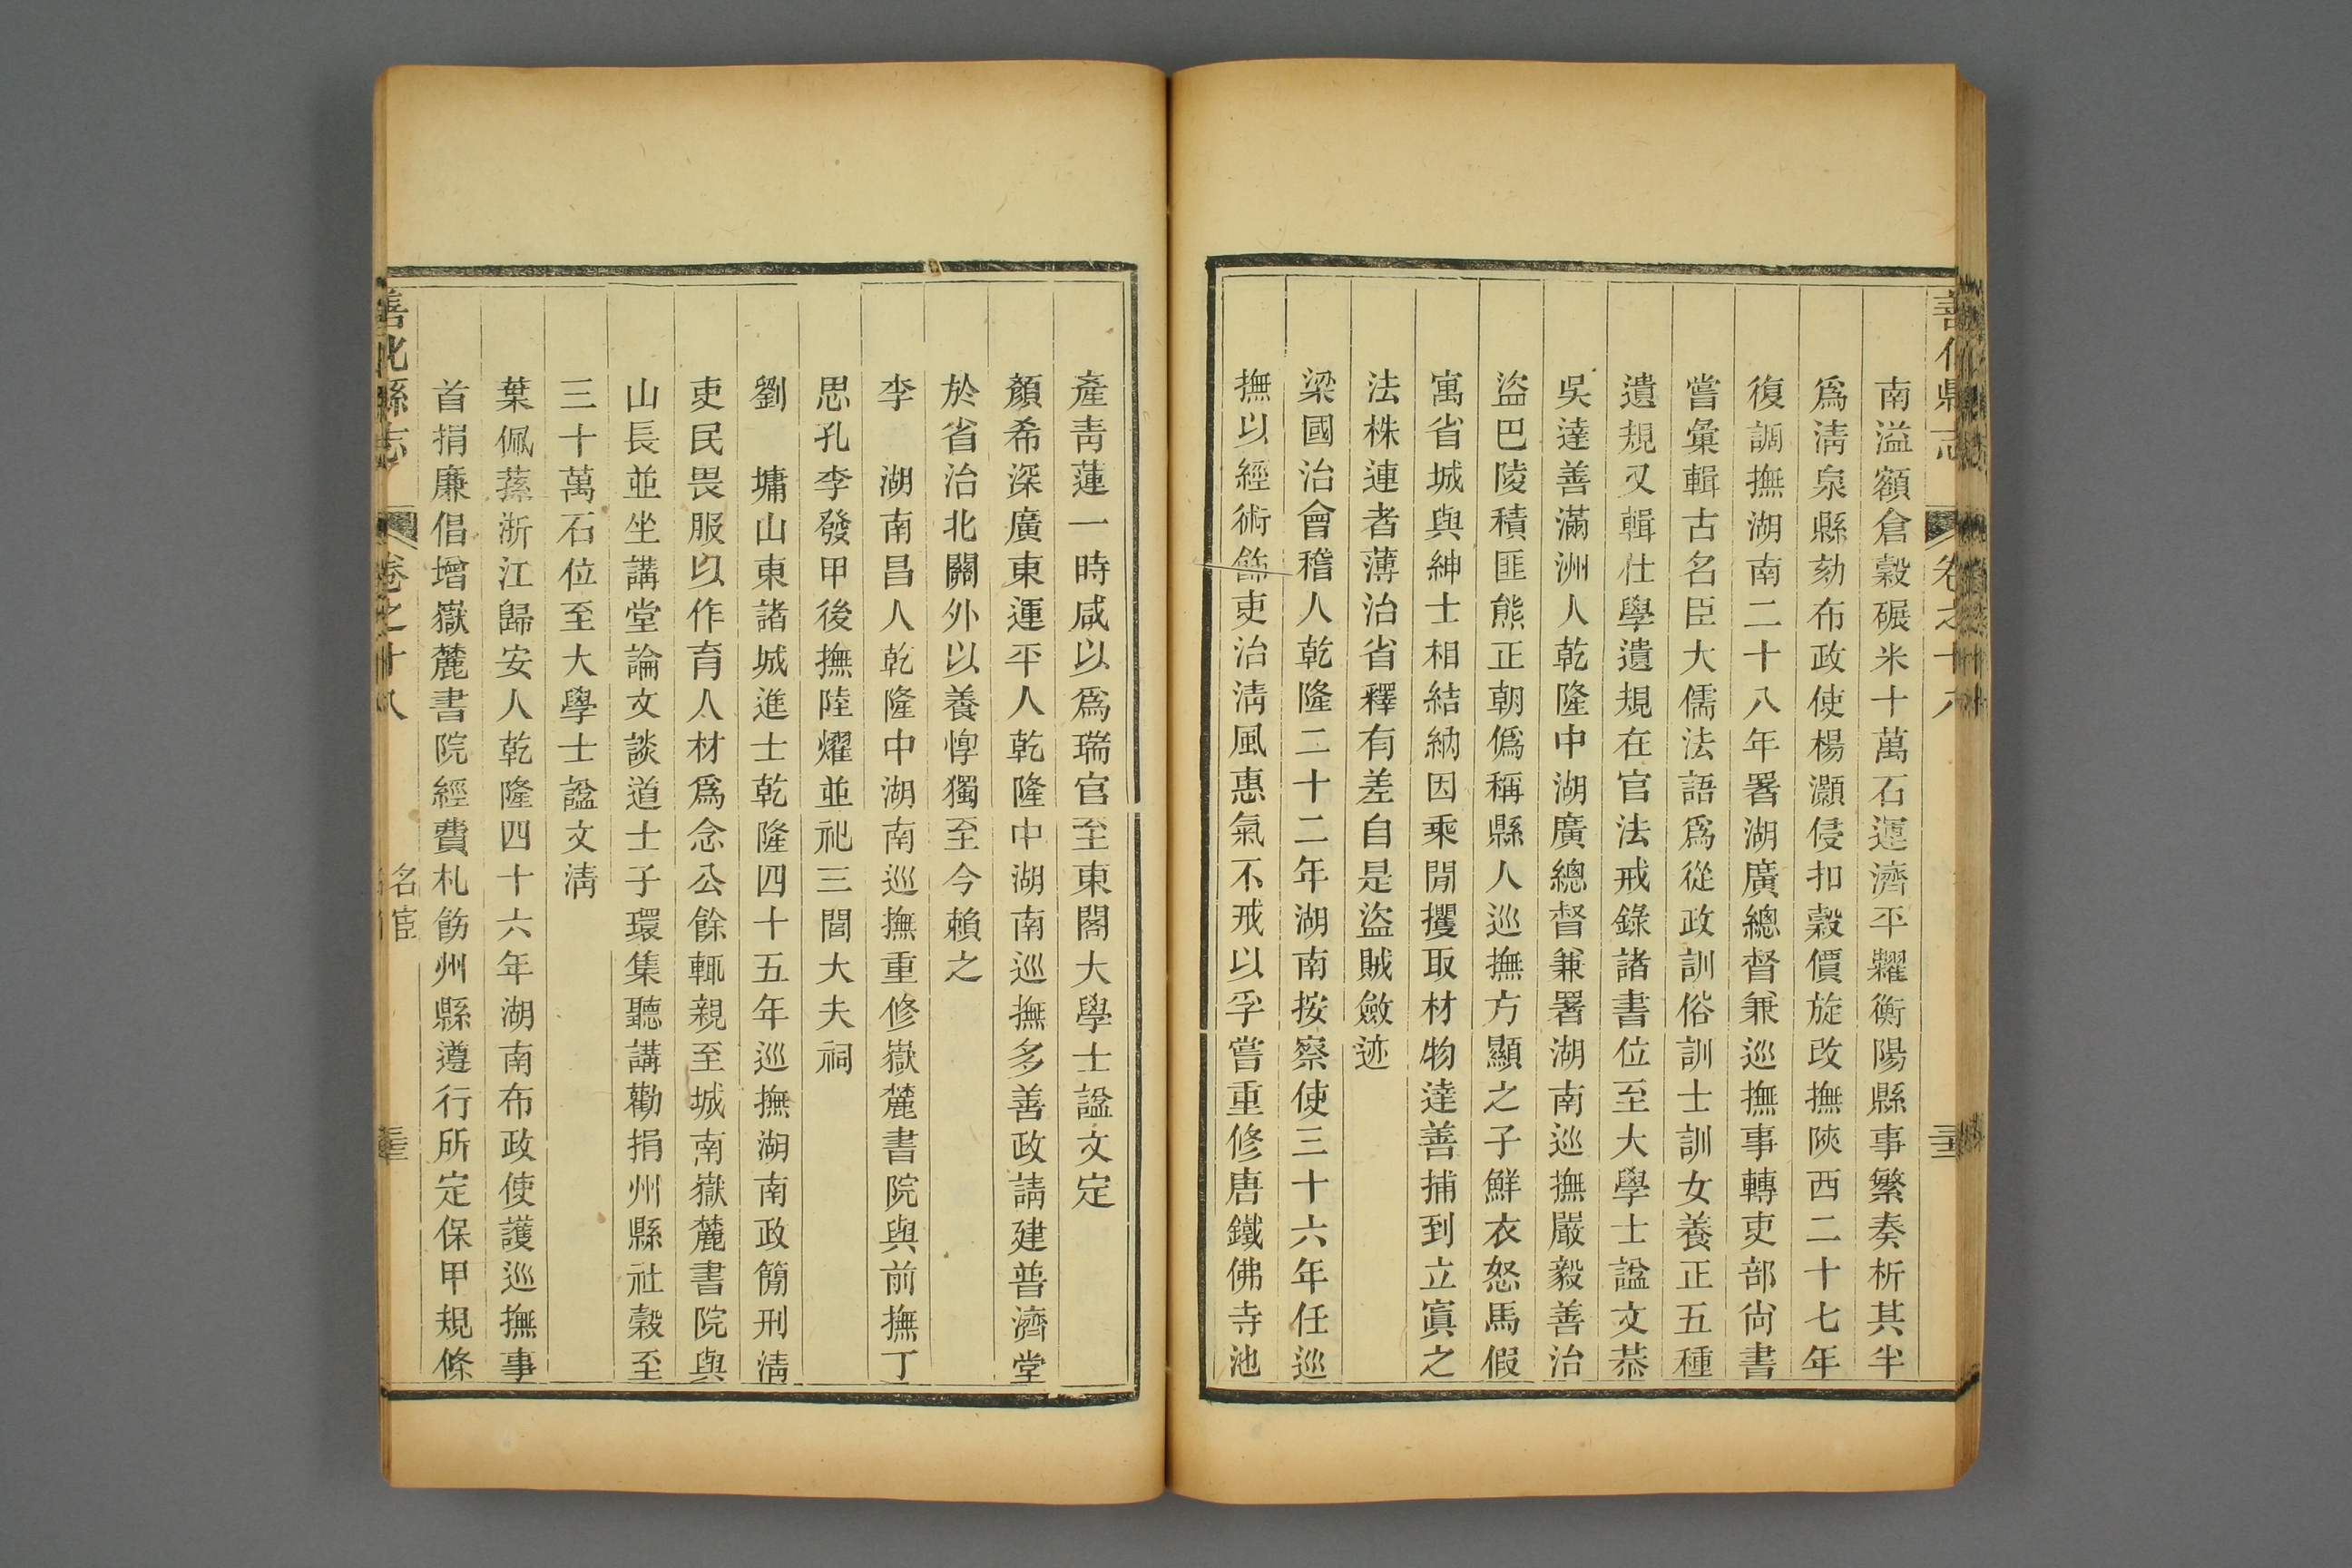 南溢額倉穀碾米十萬石運濟平糶衡陽縣事繁奏析其半
爲淸泉縣劾布政使楊灝侵扣穀價旋改撫陝西二十七年
復調撫湖南二十八年署湖廣總督兼巡撫事轉吏部尙書
嘗彙輯古名臣大儒法語爲從政訓俗訓士訓女養正五種
遺規又輯仕學遺規在官法戒錄諸書位至大學士諡文恭
吳達善滿洲人乾隆中湖廣總督兼署湖南巡撫嚴毅善治
盜巴陵積匪熊正朝僞稱縣人巡撫方顯之子鮮衣怒馬假
寓省城與紳士相結納因乘閒攫取材物達善捕到立寘之
法株連者薄治省釋有差自是盜賊斂迹
梁國治會稽人乾隆二十二年湖南按察使三十六年任巡
撫以經術飾吏治淸風惠氣不戒以孚嘗重修唐鐵佛寺池
產靑蓮一時咸以爲瑞官至東閣大學士諡文定
顏希深廣東連平人乾隆中湖南巡撫多善政請建普濟堂
於省治北關外以養惸獨至今賴之
李　湖南昌人乾隆中湖南巡撫重修嶽麓書院與前撫丁
思孔李發甲後撫陸燿並祀三閭大夫祠
劉　墉山東諸城進士乾隆四十五年巡撫湖南政簡刑淸
吏民畏服以作育人材爲念公餘輒親至城南嶽麓書院與
山長並坐講堂論文談道士子環集聽講勸捐州縣社穀至
三十萬石位至大學士諡文淸
葉佩蓀浙江歸安人乾隆四十六年湖南布政使護巡撫事
首捐廉倡增嶽麓書院經費札飭州縣遵行所定保甲規條
善化縣志　卷之十八　名宦